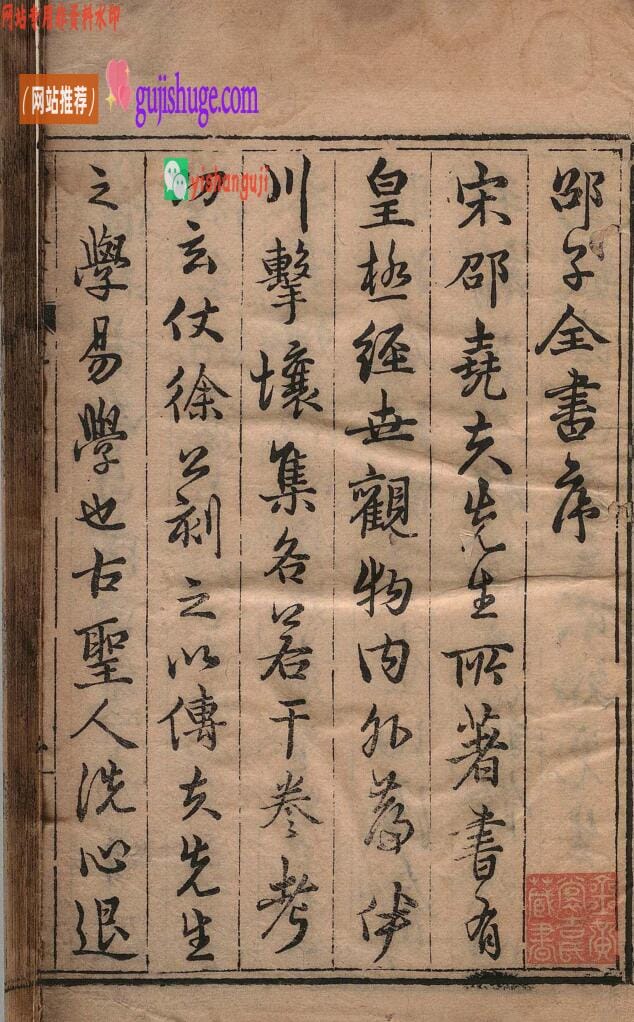 网站专用
（网站推荐）
gujishuge.com
yishanguji
邵子全書序
宋邵堯夫先生所著書有
皇極經世觀物內外篇伊
川擊壤集各若干卷考
玄仗徐公刻之以傳夫先生
之學易學也古聖人洗心退
藏書